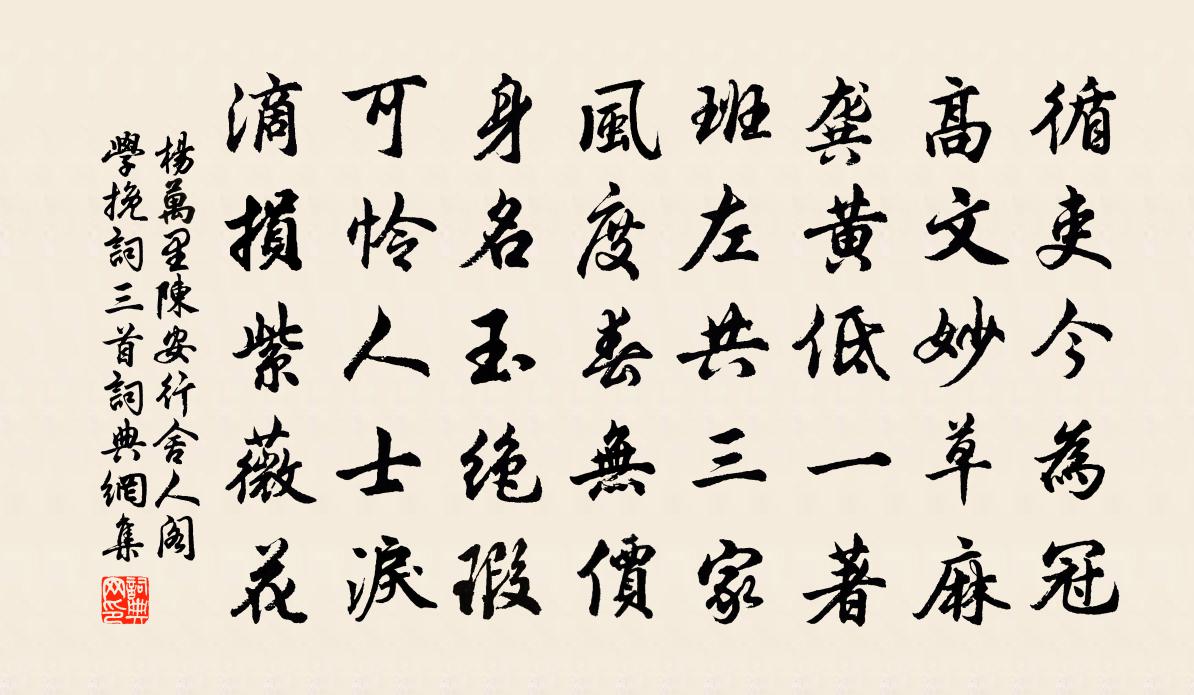 循吏今為冠
高文妙草麻
龔黄低一著
班左共三家
風度春無價
身名玉絕瑕
可怜人士淚
滴損紫薇花
楊萬里陳安行舍人閣
學挽詞三首詞典網集
詞典網印